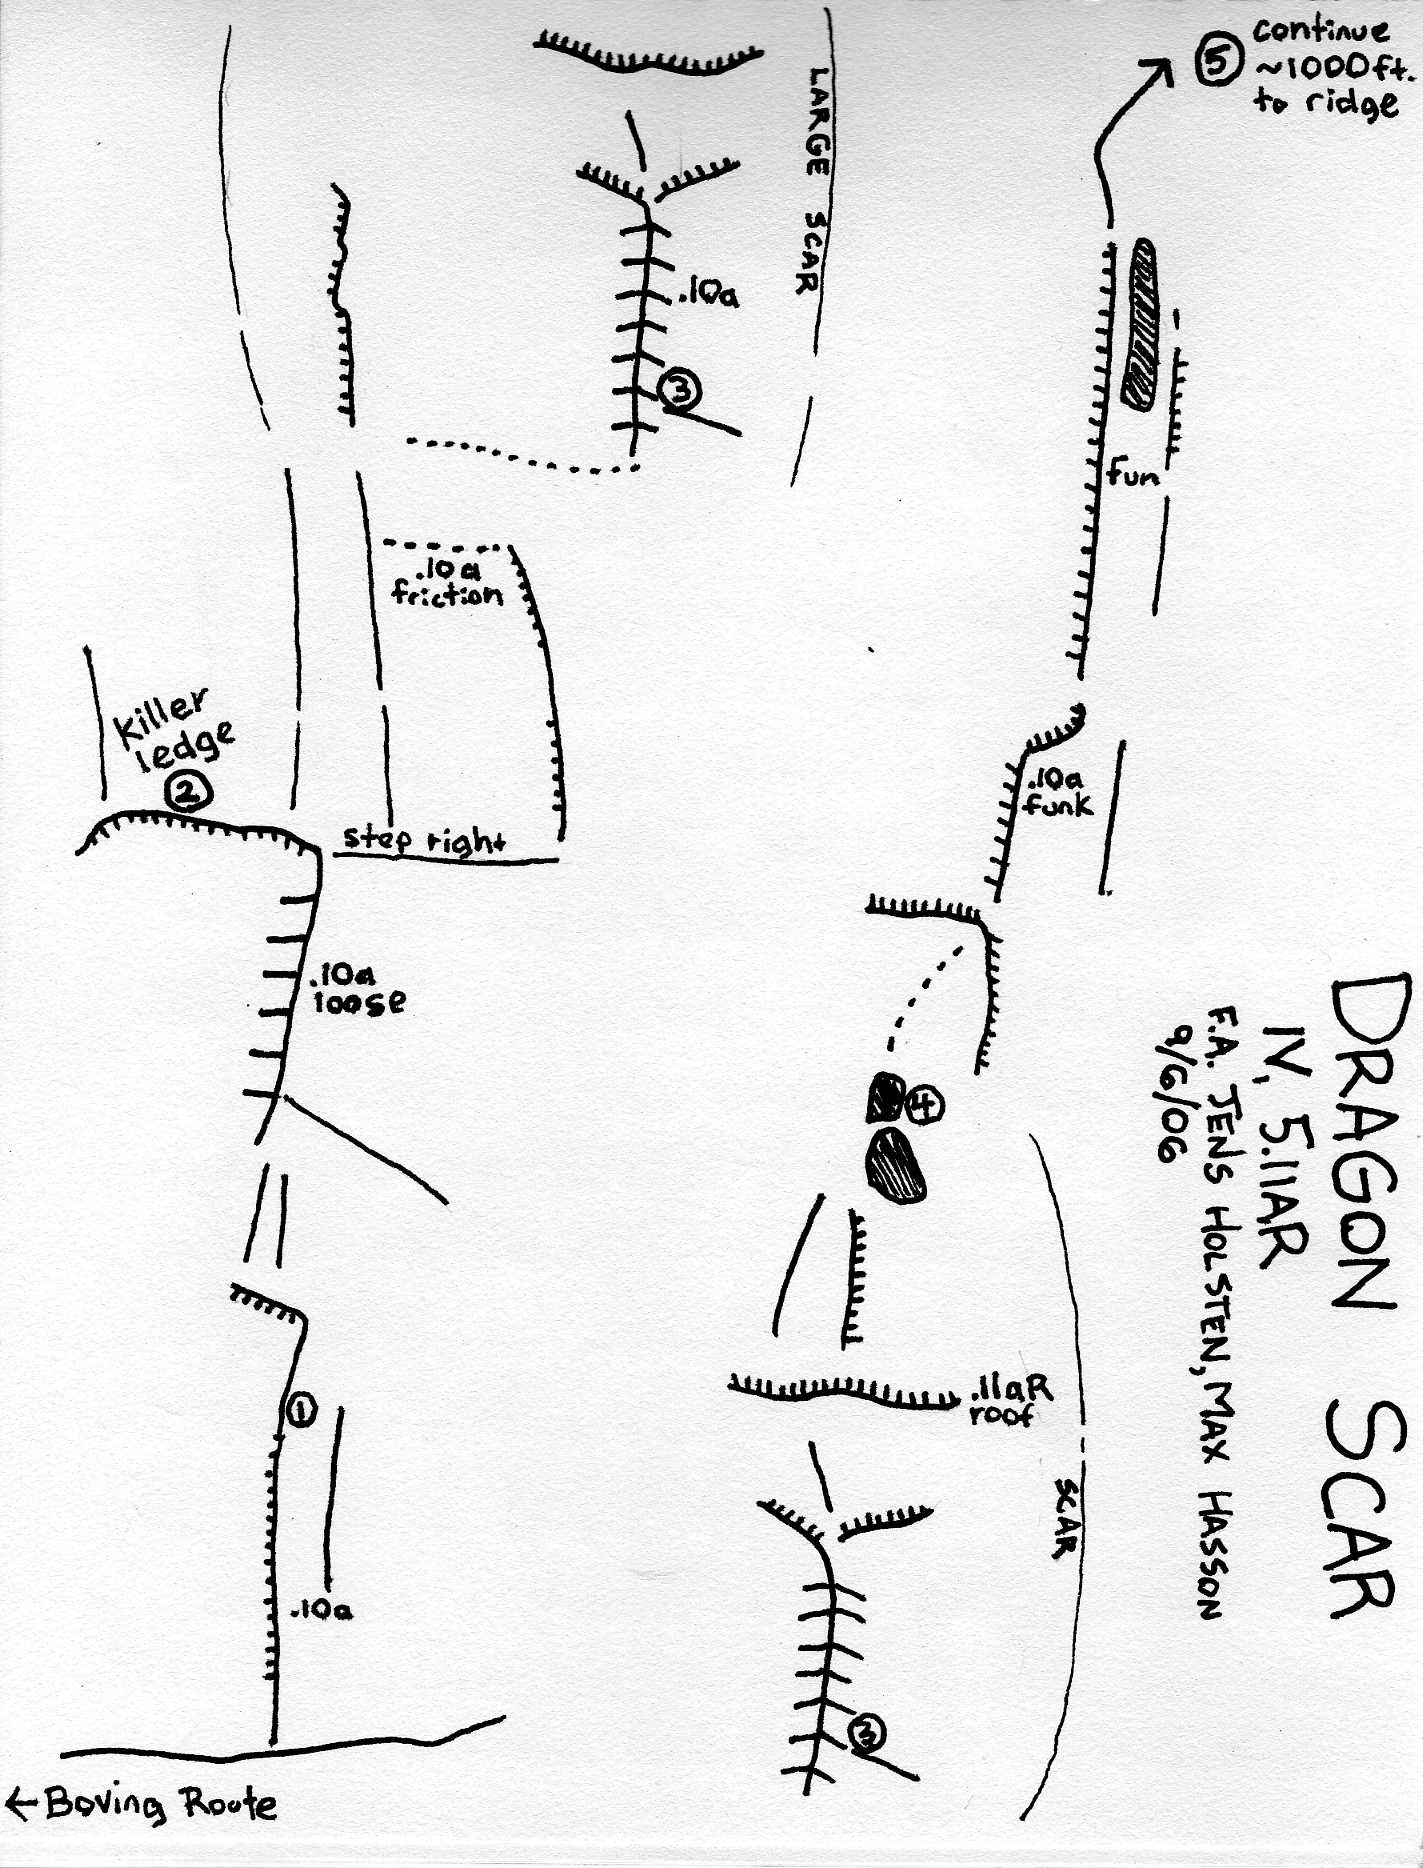 DRAGON SCAR
IV, 5.11AR
F.A. JENS HOLSTEN, MAX HASSON
9/6/06
← Boving Route
.10a
1
.10a
loose
killer
ledge
2
step right
.10a
friction
3
.10a
LARGE SCAR
3
SCAR
.11aR
roof
4
.10a
funk
fun
5
continue
~1000ft.
to ridge